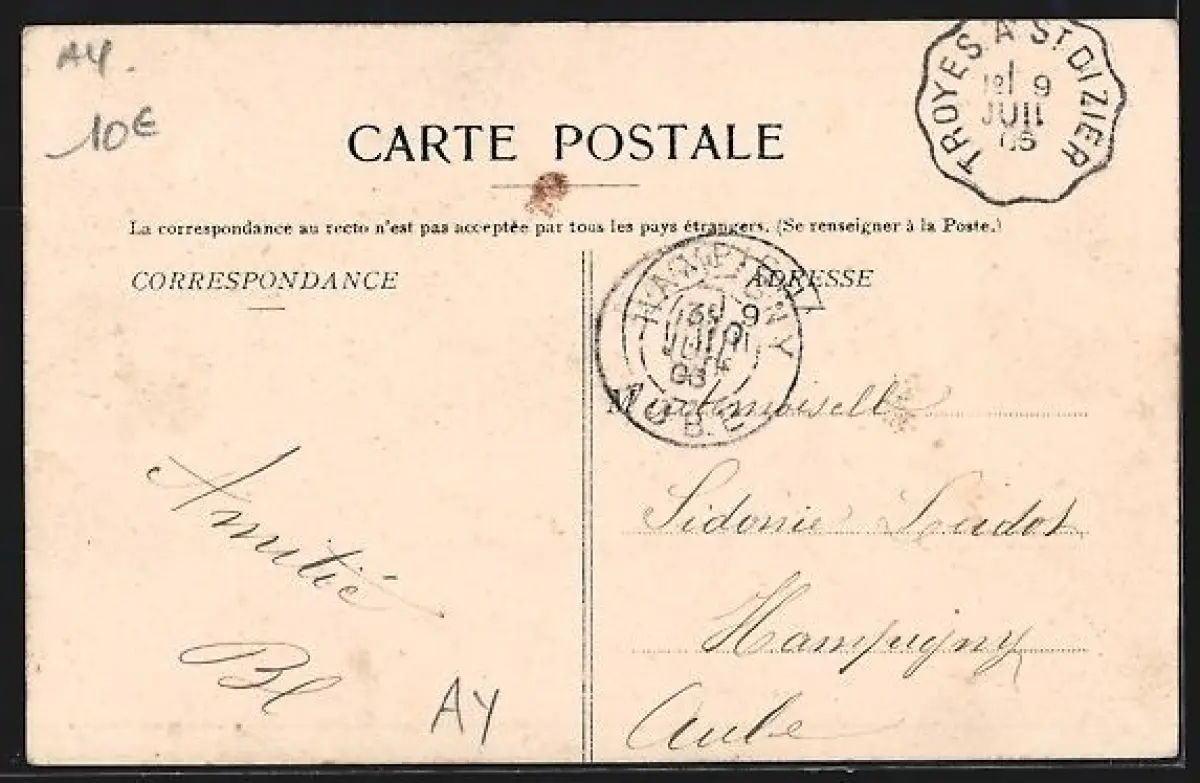 AY
10€
TROYES A ST DIZIER
9
JUIL
CARTE POSTALE
La correspondance au recto n'est pas acceptée par tous les pays étrangers. (Se renseigner à la Poste.)
CORRESPONDANCE
ADRESSE
HAMPIGNY
9
AUBE
Mademoiselle
Sidonie
Hampigny
Aube
Amitié
Bl
AY